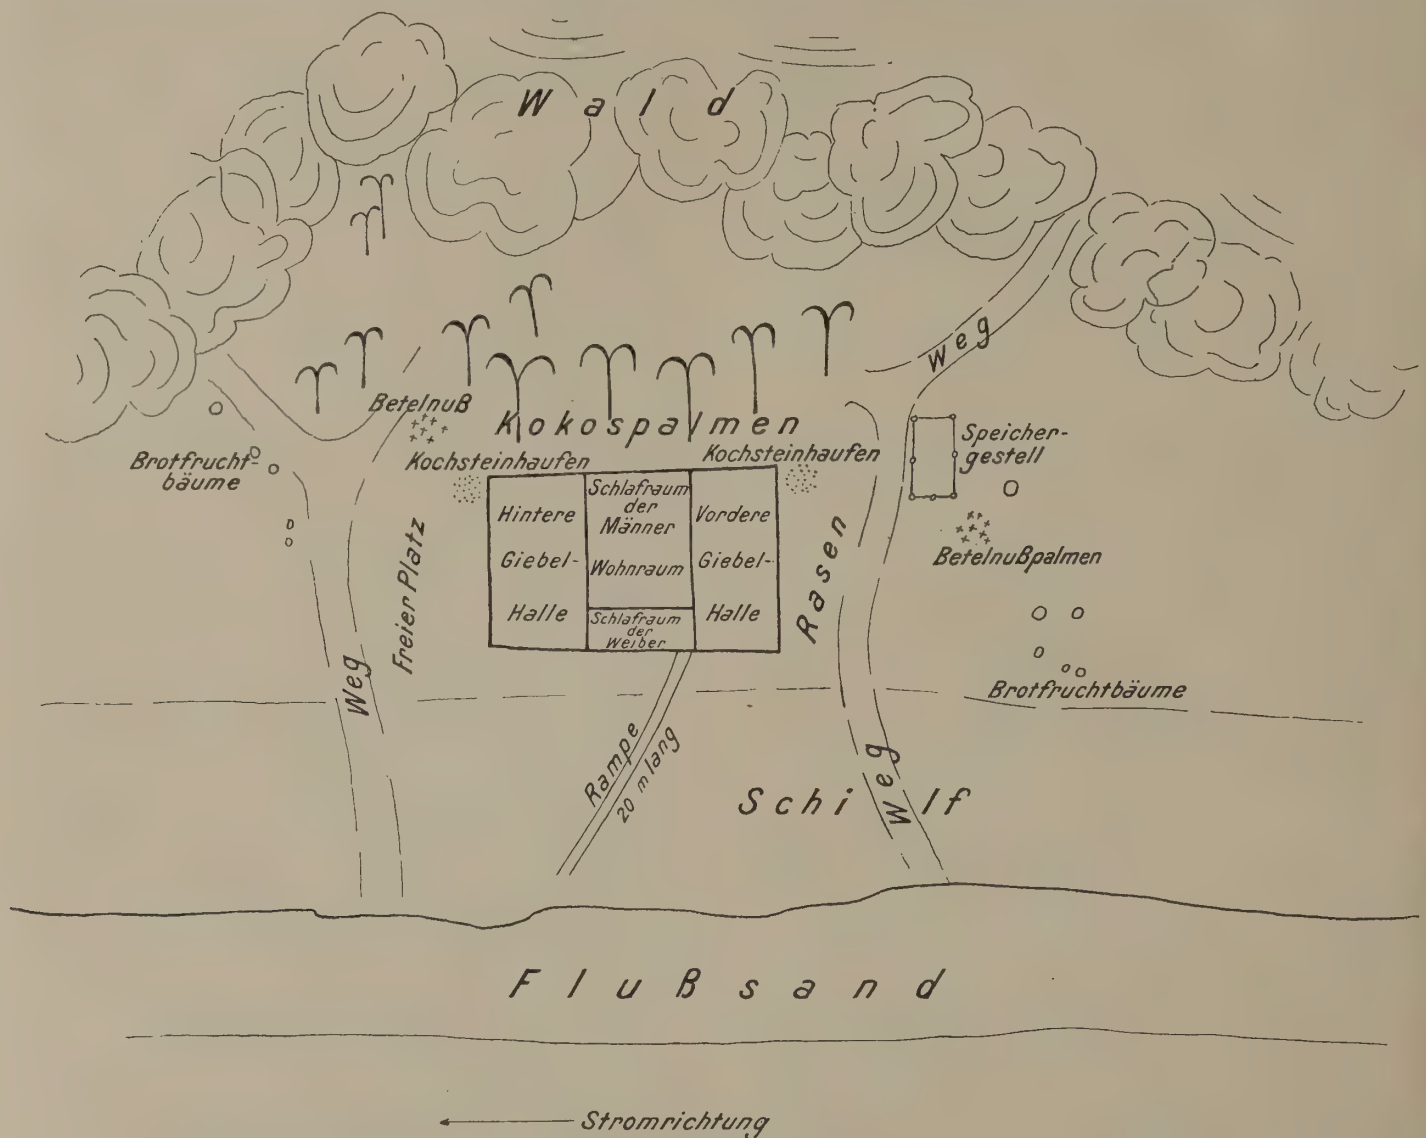 Wald
Weg
Betelnuß
Kokospalmen
Brotfrucht-
bäume
Kochsteinhaufen
Kochsteinhaufen
Speicher-
gestell
Hintere
Giebel-
Halle
Schlafraum
der
Männer
Wohnraum
Schlafraum
der
Weiber
Vordere
Giebel-
Halle
Freier Platz
Rasen
Betelnußpalmen
Weg
Brotfruchtbäume
Rampe
20 m lang
Weg
Schilf
Flußsand
Stromrichtung